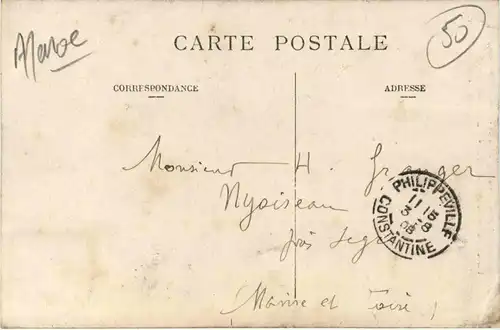 Maroc
50
CARTE POSTALE
CORRESPONDANCE
ADRESSE
Monsieur H. Granger
Nyoiseau
près Segré
Maine et Loire
PHILIPPEVILLE
11 15
3 - 8
08
CONSTANTINE